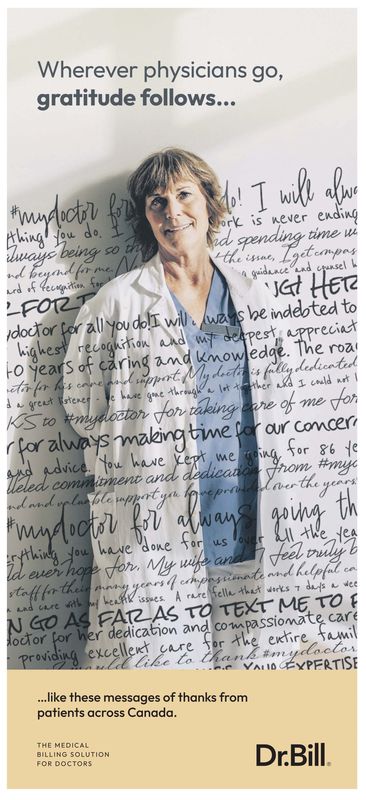 Wherever physicians go,
gratitude follows...
#mydoctor for do! I will alwa
thing you do. I work is never ending
always being so th nd spending time w
nd beyond for me. the issue, I get compas
ard of recognition for guidance and counsel h
FOR T UGH HER
ydoctor for all you do! I will always be indebted to
highest recognition and my deepest appreciat
to years of caring and knowledge. The roa
ctor for his care and support. My doctor is fully dedicated
a great listener - we have gone through a lot together and I could not
KS to #mydoctor for taking care of me for
r for always making time for our concer
and advice. You have kept me going for 86 ye
lleled commitment and dedication from #myd
nd and valuable support you have provided over the years
#mydoctor for always going th
rything you have done for us over all the yea
ld ever hope for. My wife and I feel truly b
staff for their many years of compassionate and helpful ca
and care with my health issues. A rare fella that works 7 days a wee
N GO AS FAR AS TO TEXT ME TO F
doctor for her dedication and compassionate care
providing excellent care for the entire famil
would like to thank #mydoctor
YOUR EXPERTISE
...like these messages of thanks from
patients across Canada.
THE MEDICAL
BILLING SOLUTION
FOR DOCTORS
Dr.Bill®